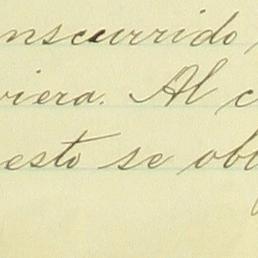 nscurrido
viera. Al c
esto se obl